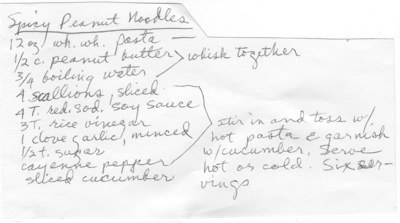 Spicy Peanut Noodles
12 oz wh. wh. pasta
1/2 c. peanut butter
3/4 boiling water
whisk together
4 scallions, sliced
4 T. red. sod. soy sauce
3 T. rice vinegar
1 clove garlic, minced
1/2 t. sugar
cayenne pepper
sliced cucumber
stir in and toss w/
hot pasta & garnish
w/cucumber. Serve
hot or cold. Six ser-
vings